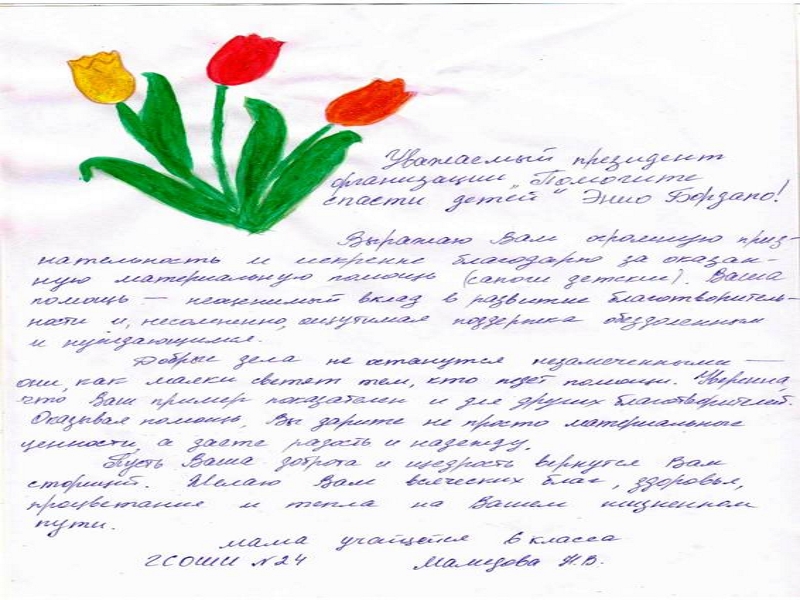 Уважаемый президент
организации „Помогите
спасти детей“ Энио Бордато!
Выражаю Вам огромную приз-
нательность и искренне благодарю за оказан-
ную материальную помощь (сапоги детские). Ваша
помощь — неоценимый вклад в развитие благотворитель-
ности и, несомненно, ощутимая поддержка обездоленным
и нуждающимся.
Добрые дела не останутся незамеченными —
они, как маяки светят тем, кто ждёт помощи. Уверенна,
что Ваш пример показателен и для других благотворителей.
Оказывая помощь, Вы дарите не просто материальные
ценности, а даёте радость и надежду.
Пусть Ваша доброта и щедрость вернутся Вам
сторицей. Желаю Вам всяческих благ, здоровья,
процветания и тепла на Вашем жизненном
пути.
мама учащегося 6 класса
ГСОШИ №24 Мамедова Н.В.